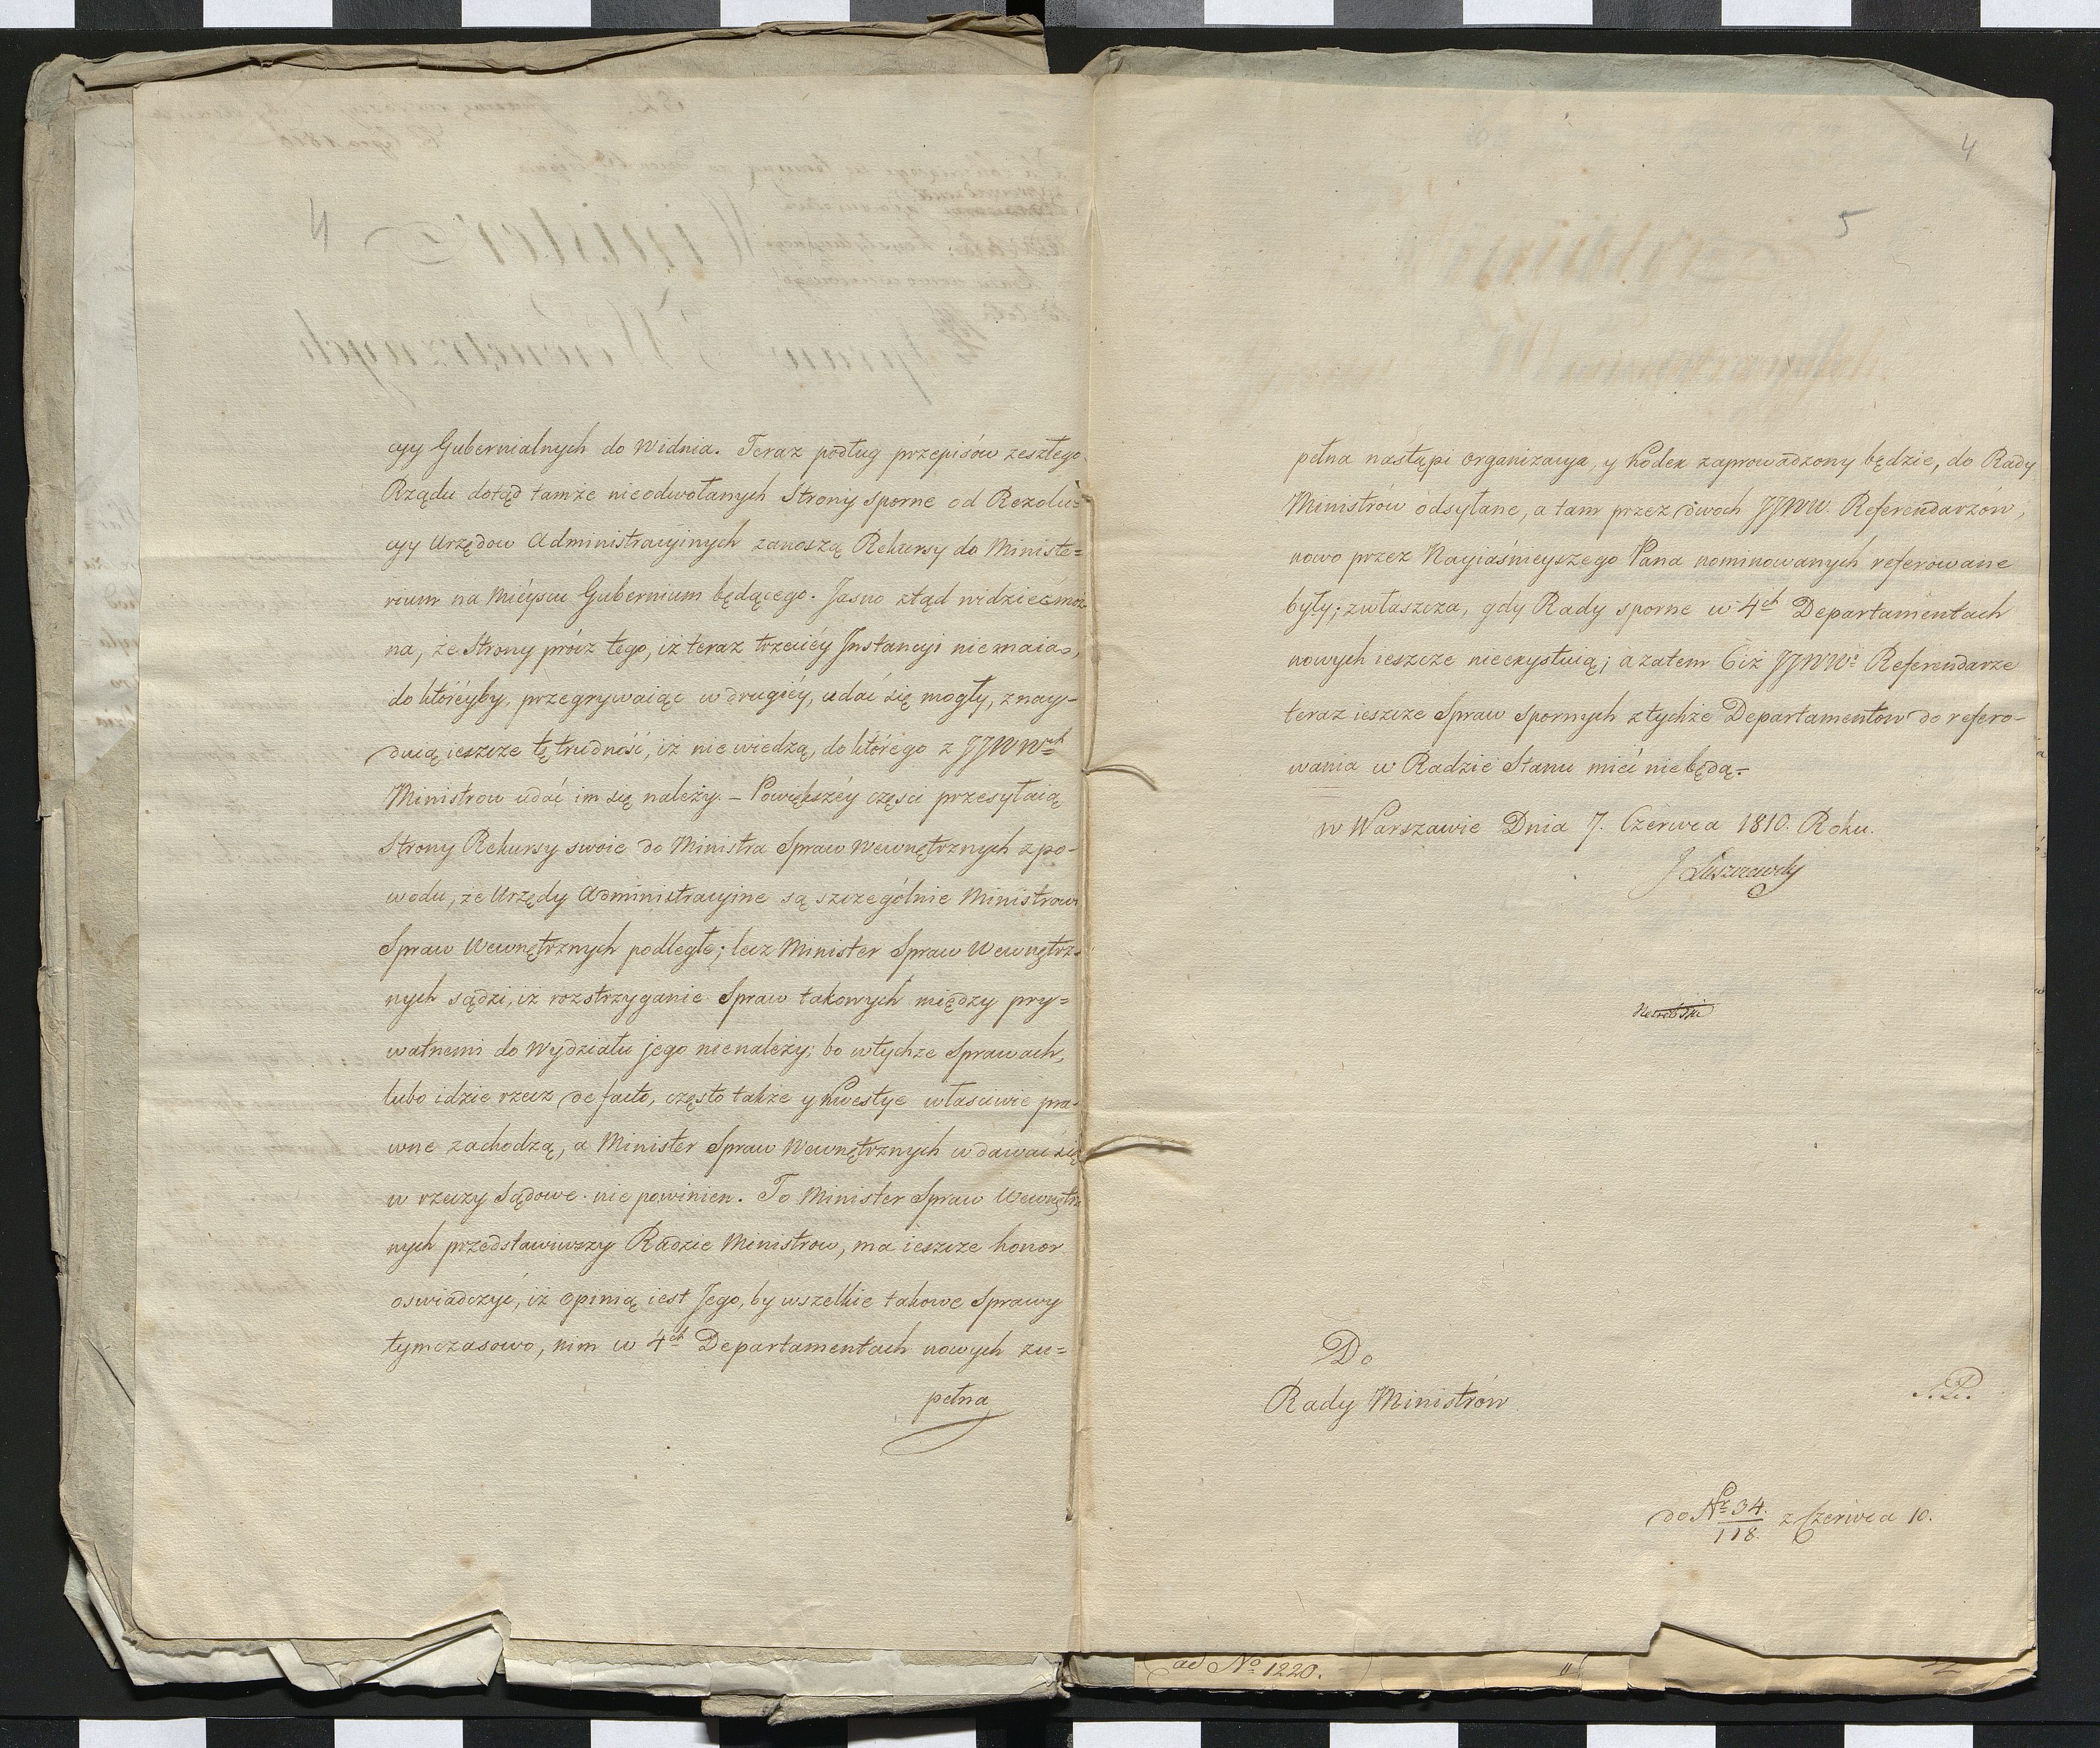 cyy Gubernialnych do Widnia. Teraz podług przepisów zeszłego
Rządu dotąd tamże nieodwołanych Strony sporne od Rezolu=
cyy Urzędow Administracyinych zanoszą Rekursy do Ministe=
rium na Mieyscu Gubernium będącego. Jasno ztąd widzieć moż
na, że Strony prócz tego, iż teraz trzeciéy Instancyi niemaią,
do któréyby, przegrywaiąc w drugiéy, udać się mogły, znay-
duią ieszcze tę trudność, iż nie wiedzą, do którego z JJWWch
Ministrow udać im się należy. – Powiększéy części przesyłaią
Strony Rekursy swoie do Ministra Spraw Wewnętrznych z po-
wodu, że Urzędy Administracyine są szczególnie Ministrowi
Spraw Wewnętrznych podległe; lecz Minister Spraw Wewnętrz-
nych sądzi, iż rozstrzyganie Spraw takowych między pry=
watnemi do Wydziału jego nienależy; bo w tychże Sprawach,
lubo idzie rzecz de facto, często także y Kwestye właściwie pra-
wne zachodzą, a Minister Spraw Wewnętrznych wdawać się
w rzeczy Sądowe nie powinien. To Minister Spraw Wewnętrz
nych przedstawiwszy Radzie Ministrow, ma ieszcze honor
oswiadczyć, iż Opinią iest Jego, by wszelkie takowe Sprawy
tymczasowo, nim w 4ch Departamentach nowych zu=
pełna
4
5
pełna nastąpi Organizacya, y Kodex zaprowadzony będzie, do Rady
Ministrów odsyłane, a tam przez dwoch JJWW. Referendarzów,
nowo przez Nayiaśnieyszego Pana nominowanych referowane
były; zwłaszcza, gdy Rady sporne w 4ch Departamentach
nowych ieszcze nieexystuią; a zatem Ciż JJWWi Referendarze
teraz ieszcze Spraw Spornych z tychże Departamentow do refero-
wania w Radzie Stanu mieć niebędą.-
w Warszawie Dnia 7. Czerwca 1810. Roku.
J Łuszczewski
Do
Rady Ministrów
do Nr 34./118. z Czerwca 10.
ad No 1220.